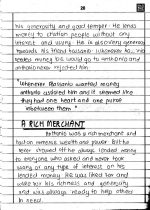 20
his generosity and good temper. He lends
money to christian people without any
interest and usury. He is also very generous
towards his friend Bassanio. Whenever he
needed money he would go to Antonio and
Antonio never rejected him.
"Whenever Bassanio wanted money
Antonio assisted him and it seemed like
they had one heart and one purse
between them"
A RICH MERCHANT
Antonio was a rich merchant and
had an immense wealth and power. But he
never showed off. He always lended money
to everyone who asked and never took
usury or any type of interest on his
lended money. He was liked for and
wide by his richness and generosity
and was always ready to help others
in need.